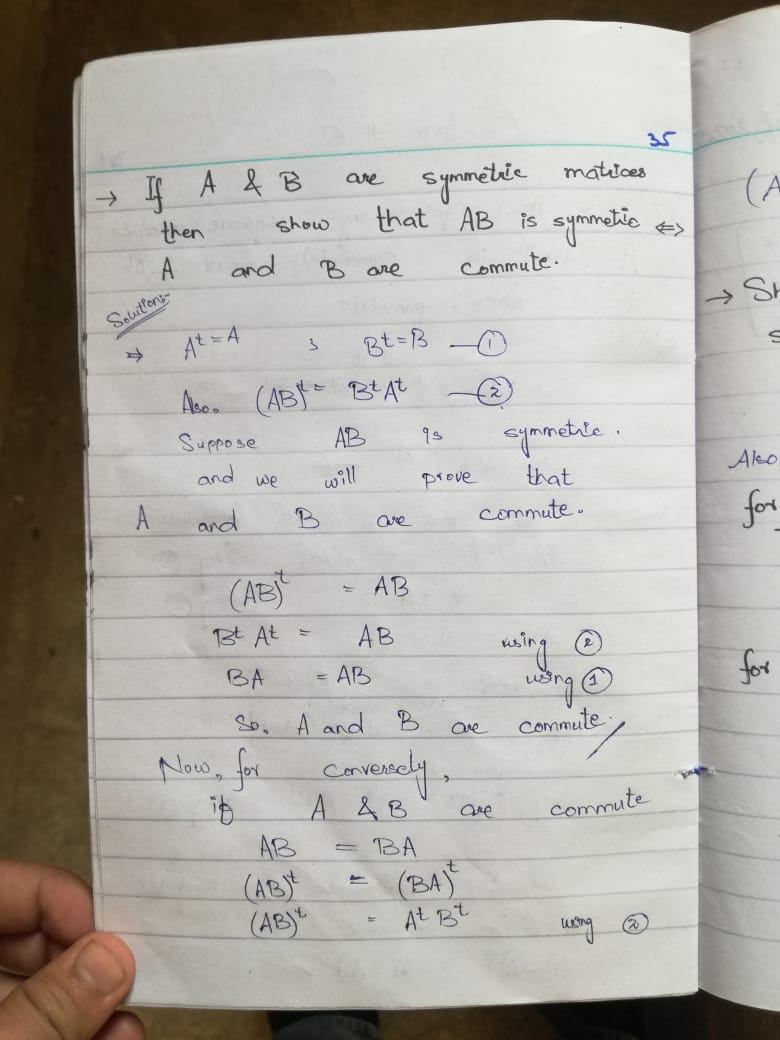 35
→ If A & B are symmetric matrices
then show that AB is symmetric ⇔
A and B are commute.
Solution:-
⇒ Aᵗ = A ; Bᵗ = B —①
Also. (AB)ᵗ = BᵗAᵗ —②
Suppose AB is symmetric.
and we will prove that
A and B are commute.
(AB)ᵗ = AB
Bᵗ Aᵗ = AB using ②
BA = AB using ①
So, A and B are commute.
Now, for conversely,
if A & B are commute
AB = BA
(AB)ᵗ = (BA)ᵗ
(AB)ᵗ = Aᵗ Bᵗ using ②
(A
→ Sh
s
Also
for
for